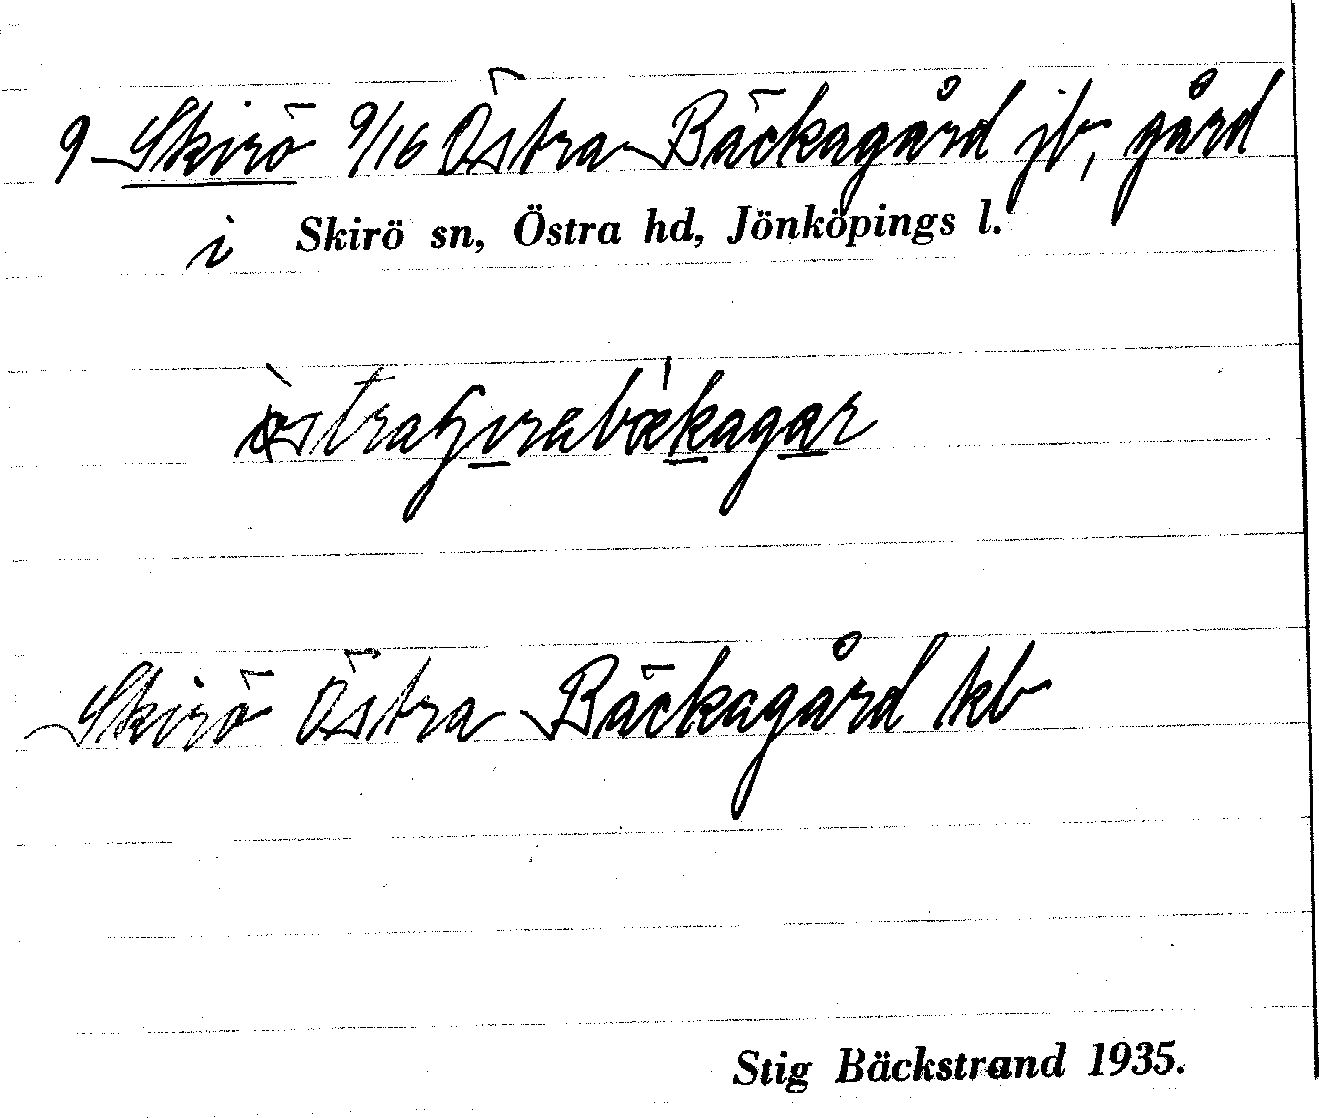 9 Skirö 9/16 Östra Bäckagård jb, gård
i Skirö sn, Östra hd, Jönköpings l.
Skirö Östra Bäckagård kb
Stig Bäckstrand 1935.